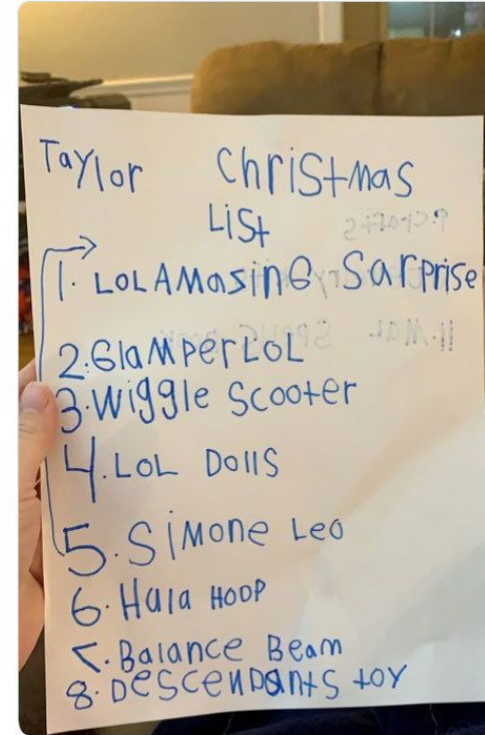 Taylor Christmas
List
1. LOL AMasinG Sarprise
2. GlaMper LOL
3. Wiggle Scooter
4. LOL Dolls
5. Simone Leo
6. Hula Hoop
7. Balance Beam
8. Descendants toy
9. Crafts